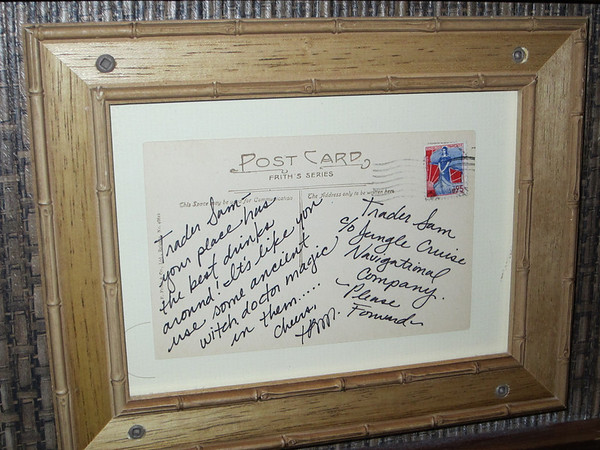 POST CARD
FRITH'S SERIES
This Space may be used for Communication
The Address only to be written here
Trader Sam-
your place has
the best drinks
around! It's like you
use some ancient
witch doctor magic
in them.....
Cheers,
Trader Sam
c/o Jungle Cruise
Navigational
Company.
~Please
Forward~